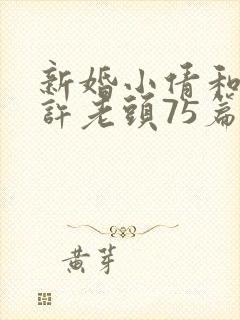 新婚小倩和
許老頭75篇
黃芽